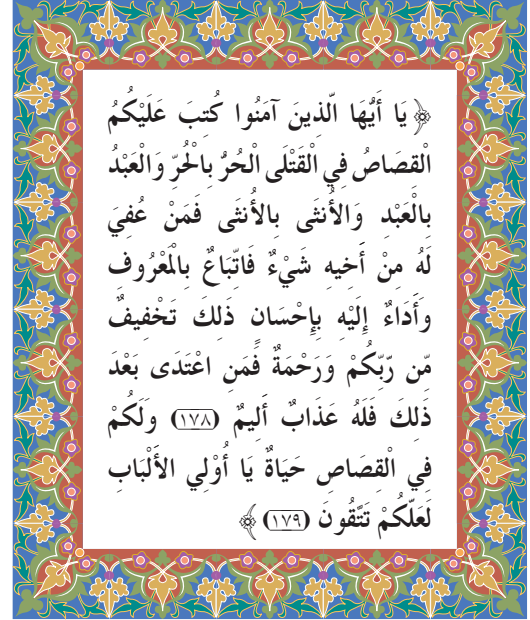 ﴿ يَا أَيُّهَا الّذينَ آمَنُوا كُتبَ عَلَيْكُمُ
الْقصَاصُ فِي الْقَتْلَى الْحُرُّ بِالْحُرّ وَالْعَبْدُ
بالْعَبْد وَالأُنثَى بالأُنثَى فَمَنْ عُفيَ
لَهُ منْ أَخيه شَيْءٌ فَاتّبَاعٌ بالْمَعْرُوف
وَأَدَاءٌ إلَيْه بإحْسَانٍ ذَلكَ تَخْفيفٌ
مّن رّبّكُمْ وَرَحْمَةٌ فَمَن اعْتَدَى بَعْدَ
ذَلكَ فَلَهُ عَذَابٌ أَليمٌ (١٧٨) وَلَكُمْ
في الْقصَاص حَيَاةٌ يَا أُوْلي الأَلْبَاب
لَعَلّكُمْ تَتَّقُونَ (١٧٩) ﴾